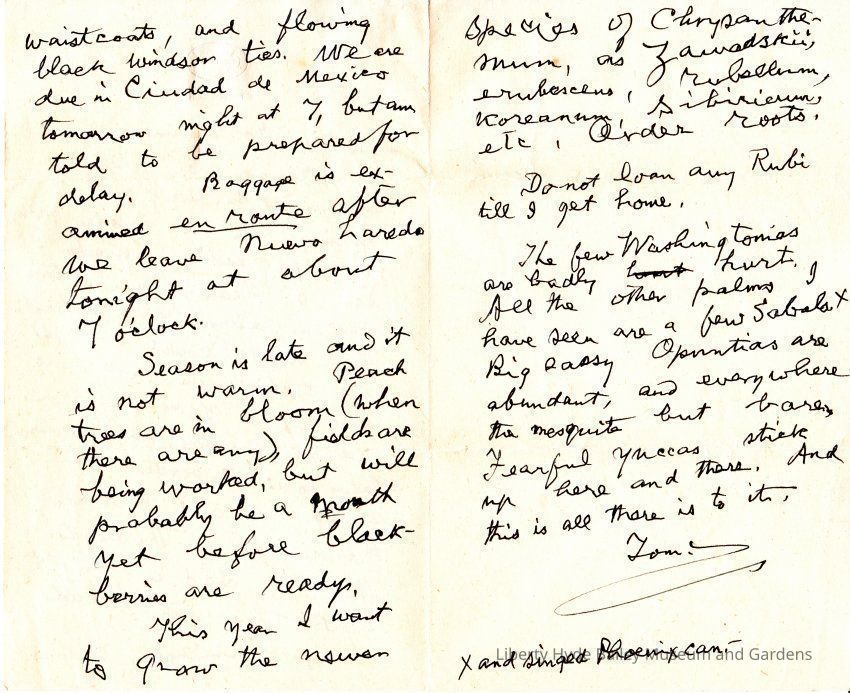 waistcoats, and flowing
black windsor ties. We are
due in Ciudad de Mexico
tomorrow night at 7, but am
told to be prepared for
delay. Baggage is ex-
amined en route after
we leave Nuevo Laredo
tonight at about
7 o'clock.
Season is late and it
is not warm. Peach
trees are in bloom (when
there are any), fields are
being worked, but will
probably be a month
yet before black-
berries are ready.
This year I want
to grow the newer
species of Chrysanthe-
mum, as Zawadskii,
erubescens, rubellum,
Koreanum, Sibiricum,
etc. Order roots.
Do not loan any Rubi
till I get home.
The few Washingtonias
are badly hurt.
All the other palms I
have seen are a few Sabals.x
Big Opuntias are
abundant, and everywhere
the mesquite but bare.
Fearful yuccas stick
up here and there. And
this is all there is to it.
Tom.
x and singed Phoenix can.-
Liberty Hyde Bailey Museum and Gardens